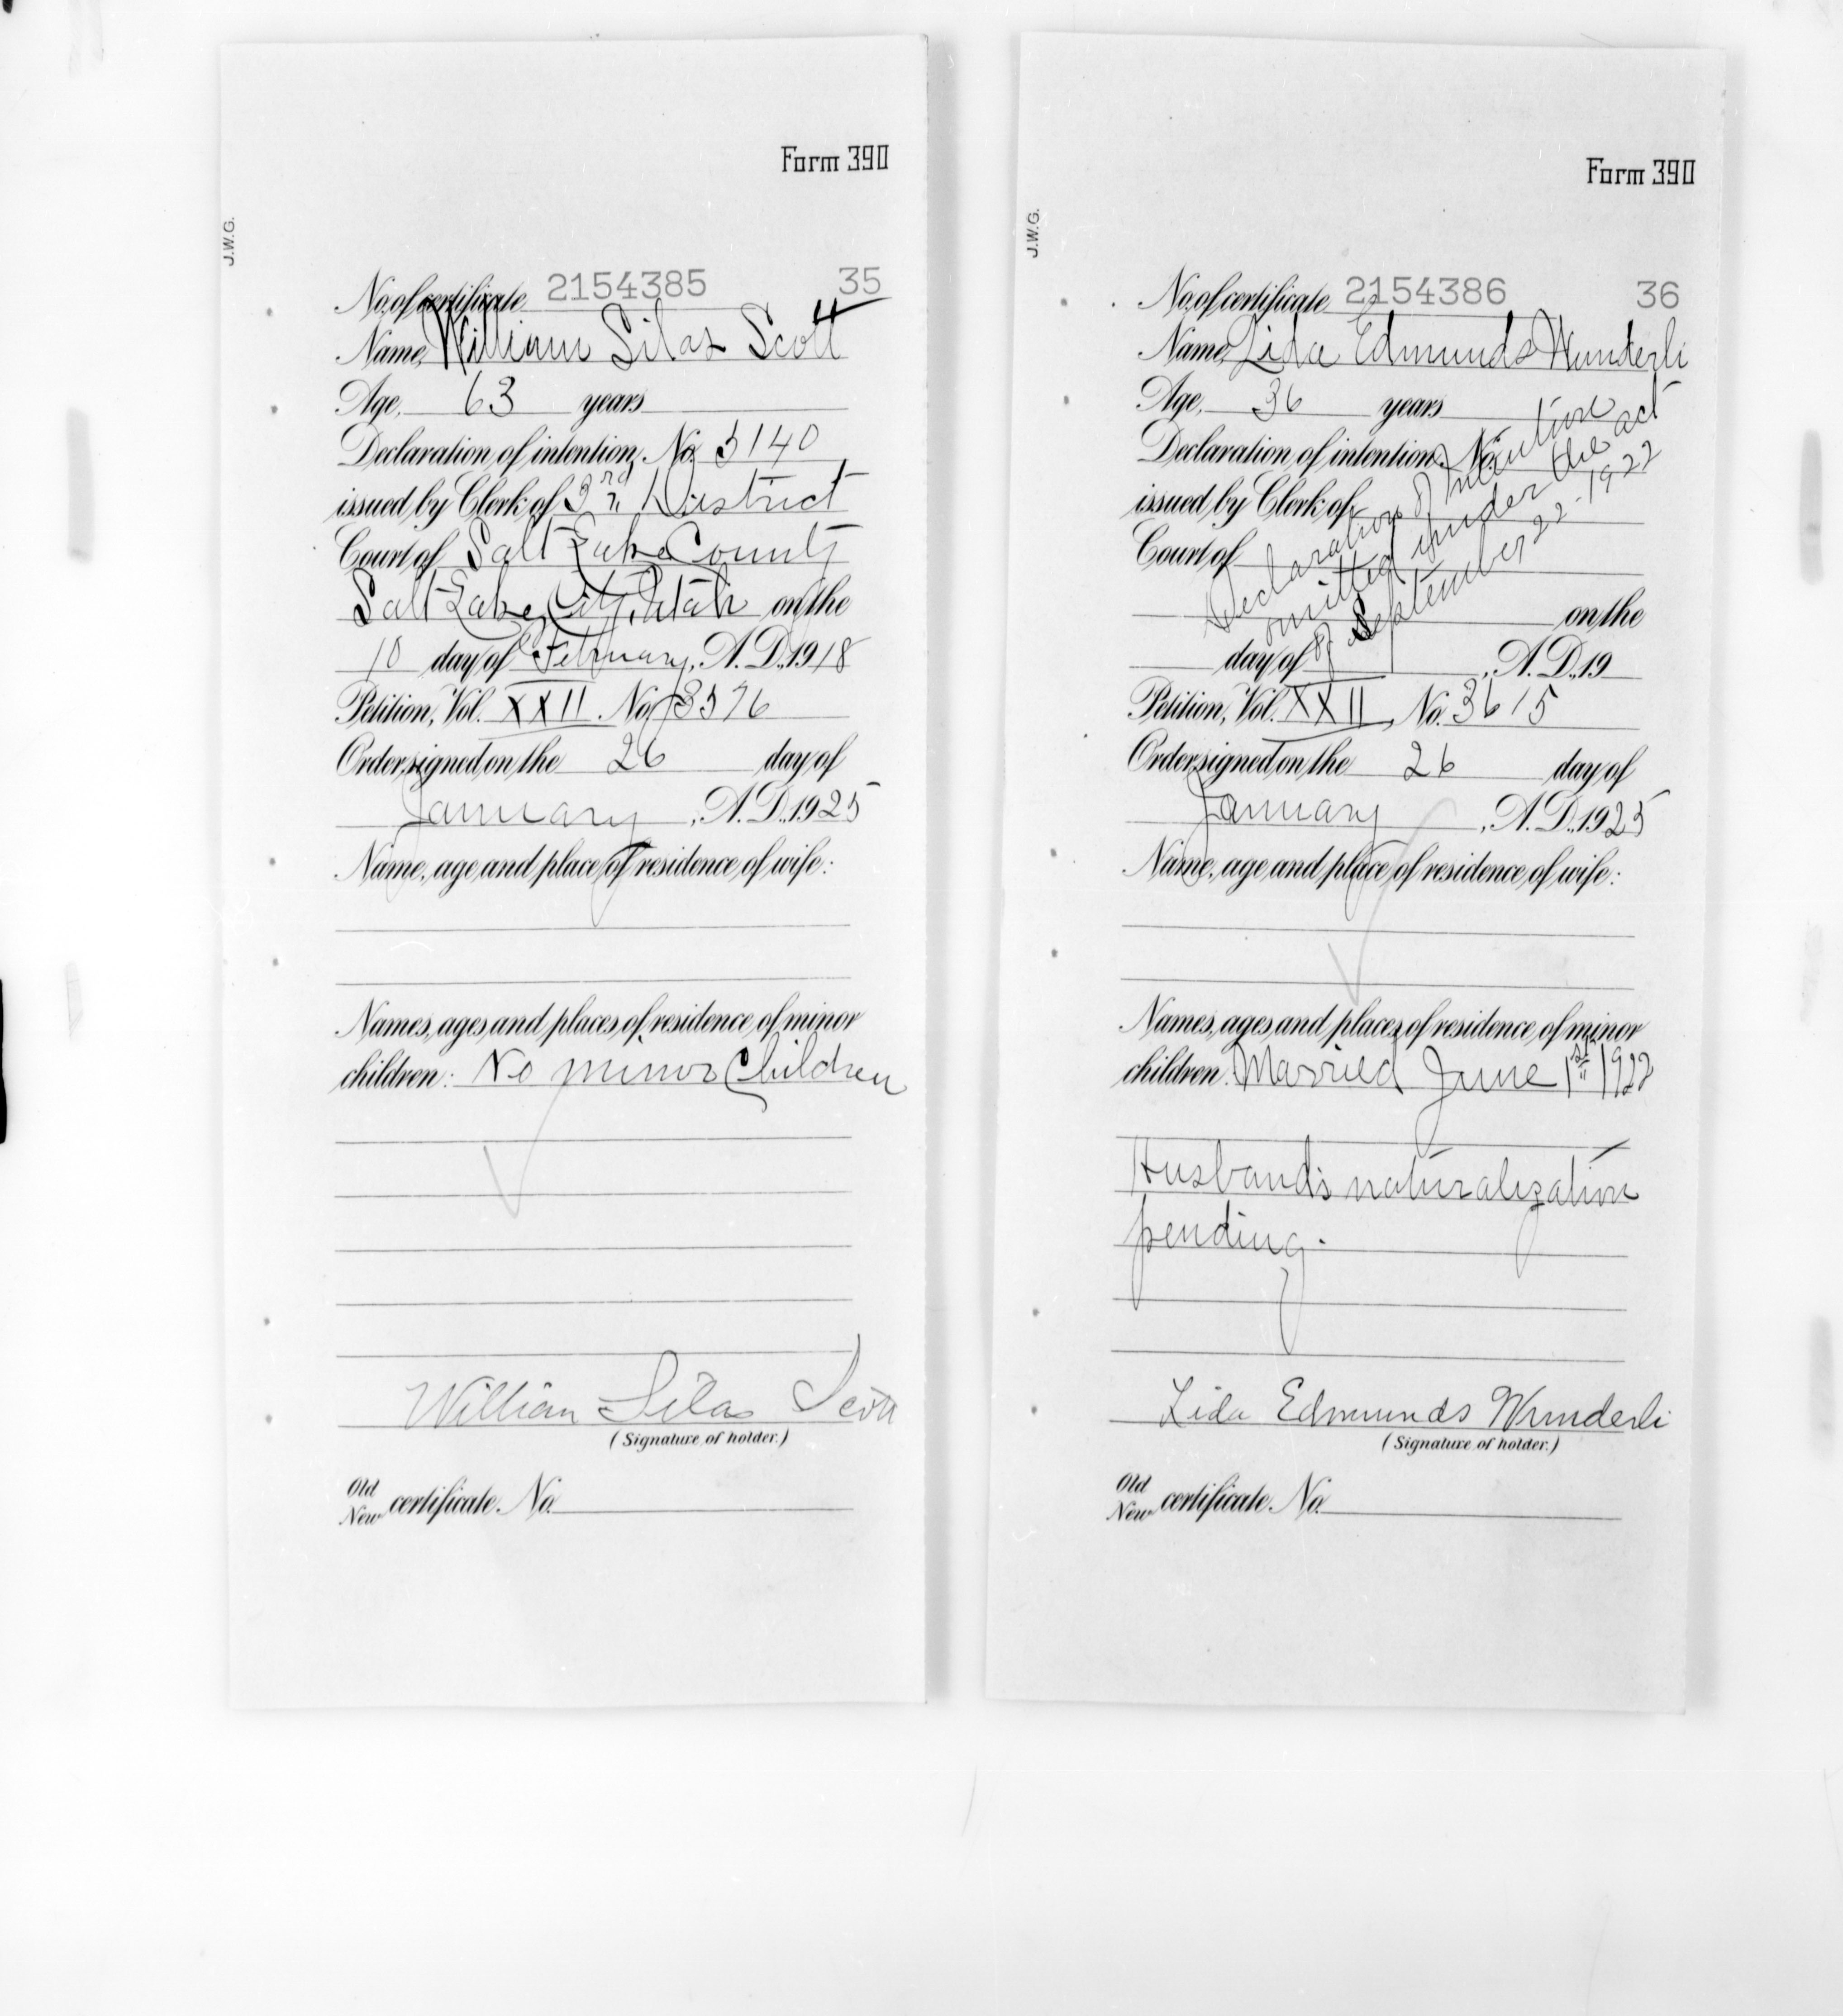 Form 390
J.W.G.
No. of certificate 2154385 35
Name, William Silas Scott
Age, 63 years
Declaration of intention, No. 5140
issued by Clerk of 3rd District
Court of Salt Lake County
Salt Lake City, Utah on the
10 day of February, A.D. 1918
Petition, Vol. XXII. No. 3576
Order signed on the 26 day of
January, A.D. 1925
Name, age and place of residence of wife:
Names, ages and places of residence of minor
children: No minor Children
William Silas Scott
(Signature of holder.)
Old
New certificate No.
Form 390
J.W.G.
No. of certificate 2154386 36
Name, Lida Edmunds Wunderli
Age, 36 years
Declaration of intention, No.
issued by Clerk of
Court of
on the
day of , A.D. 19
Declaration of intention
omitted under the act
of September 22-1922
Petition, Vol. XXII, No. 3615
Order signed on the 26 day of
January, A.D. 1925
Name, age and place of residence of wife:
Names, ages and places of residence of minor
children: Married June 1st 1922
Husband's naturalization
pending.
Lida Edmunds Wunderli
(Signature of holder.)
Old
New certificate No.